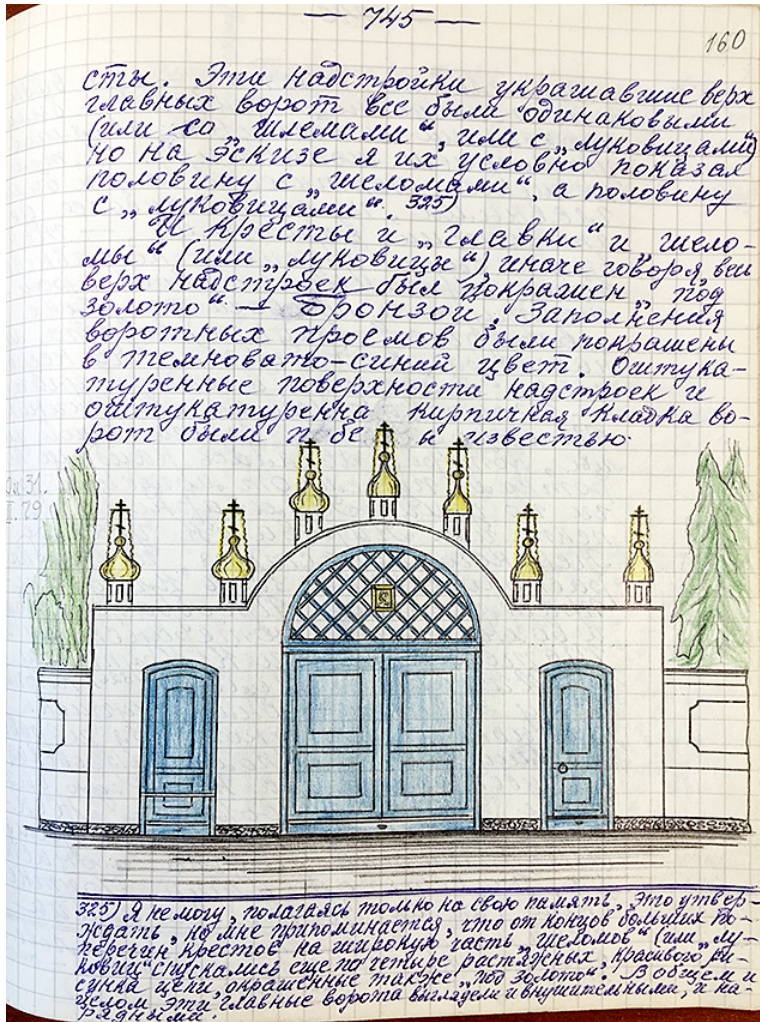 — 745 —
160
сты. Эти надстройки украшавшие верх
главных ворот все были одинаковыми
(или со „шлемами“, или с „луковицами“)
но на эскизе я их условно показал
половину с „шеломами“, а половину
с „луковицами“. 325)
И кресты и „главки“ и шело-
мы“ (или „луковицы“), иначе говоря весь
верх надстроек был покрашен „под
золото“ — бронзой. Заполнения
воротных проемов были покрашены
в темновато-синий цвет. Оштука-
туренные поверхности надстроек и
оштукатуренна кирпичная кладка во-
рот были п бе ы известью.
31.
79
325) Я не могу, полагаясь только на свою память, это утвер-
ждать, но мне припоминается, что от концов больших по-
перечин крестов на широкую часть „шеломов“ (или „лу-
ковиц“ спускались еще по четыре растяжных, красивого ри-
сунка цепи, окрашенные также „под золото“. В общем и
целом эти главные ворота выглядели и внушительными, и на-
рядными.